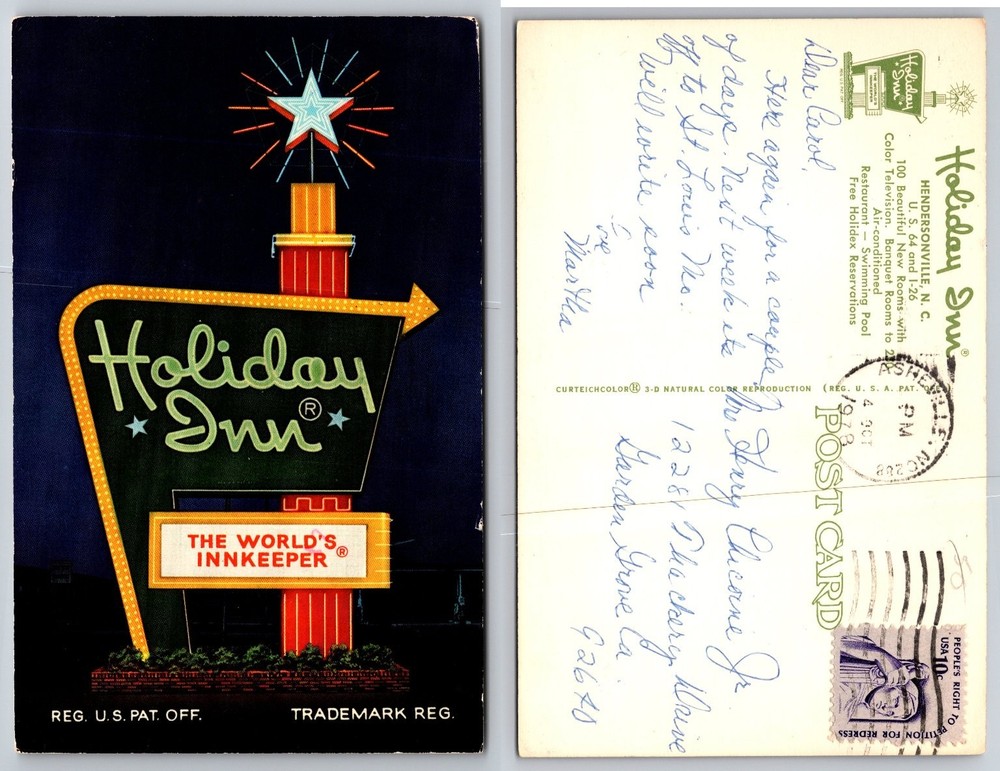 Holiday
Inn®
THE WORLD'S
INNKEEPER®
REG. U.S. PAT. OFF.
TRADEMARK REG.
Holiday Inn
Holiday Inn®
HENDERSONVILLE, N. C.
U. S. 64 and I-26
100 Beautiful New Rooms with
Color Television. Banquet Rooms to 2
Air-conditioned
Restaurant — Swimming Pool
Free Holidex Reservations
Dear Carol,
Here again for a couple
of days. Next week its
off to St. Louis Mo.
Will write soon
Love
Martha
CURTEICHCOLOR® 3-D NATURAL COLOR REPRODUCTION (REG. U. S. A. PAT. O
POST CARD
ASHEVILLE, NC
PM
4 OCT
1978
PEOPLE'S RIGHT TO PETITION FOR REDRESS
USA 10c
Mr. Harry Chicoine Jr.
12281 Thackery Drive
Garden Grove Ca
92640